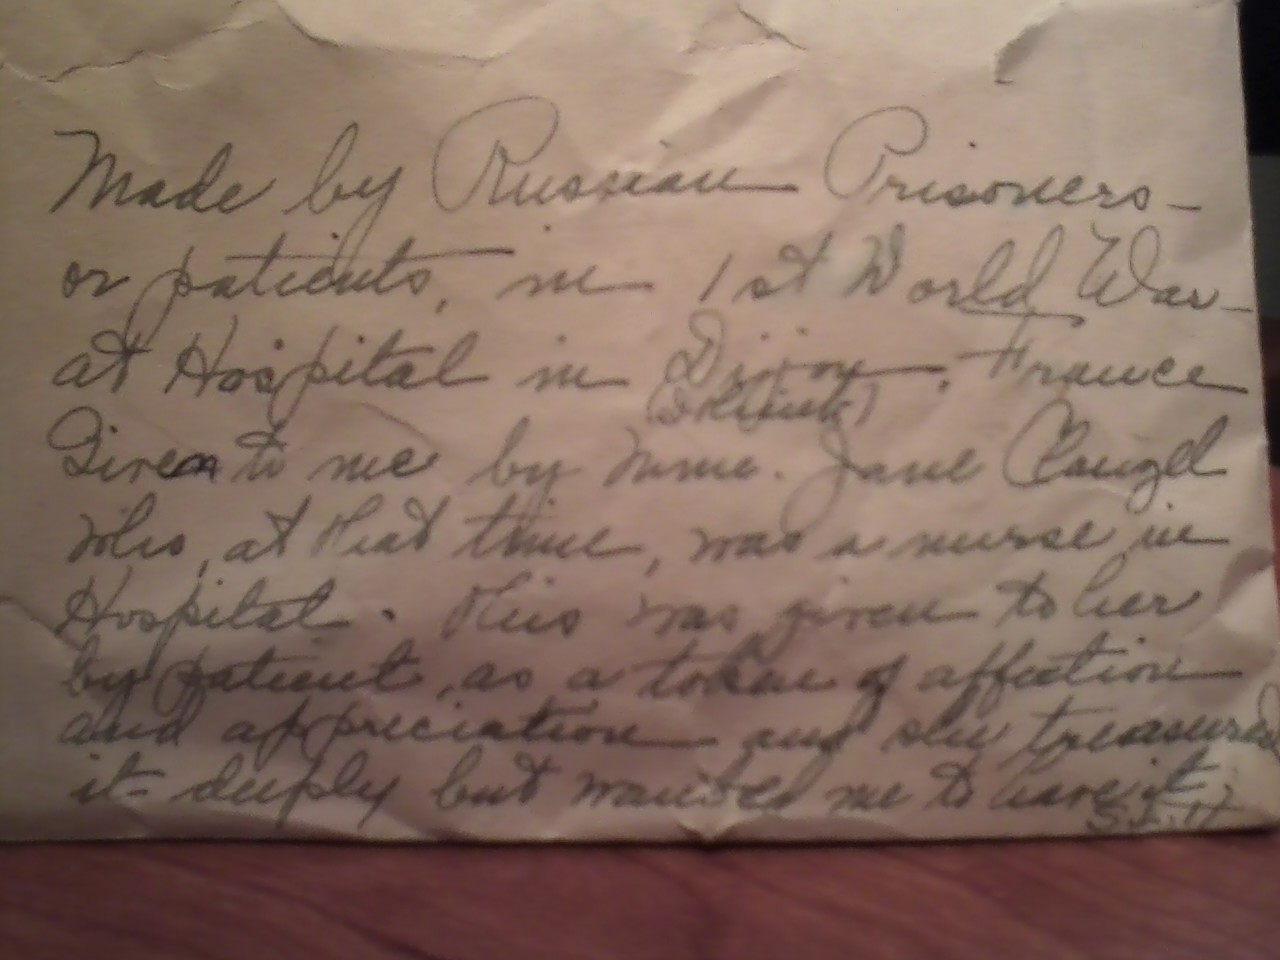 Made by Russian Prisoners -
or patients, in 1st World War -
at Hospital in Dijon, France
(I think)
Given to me by Mme. Jane Clauzel
who, at that time, was a nurse in
Hospital. This was given to her
by patient, as a token of affection
and appreciation and she treasured
it deeply but wanted me to have it.